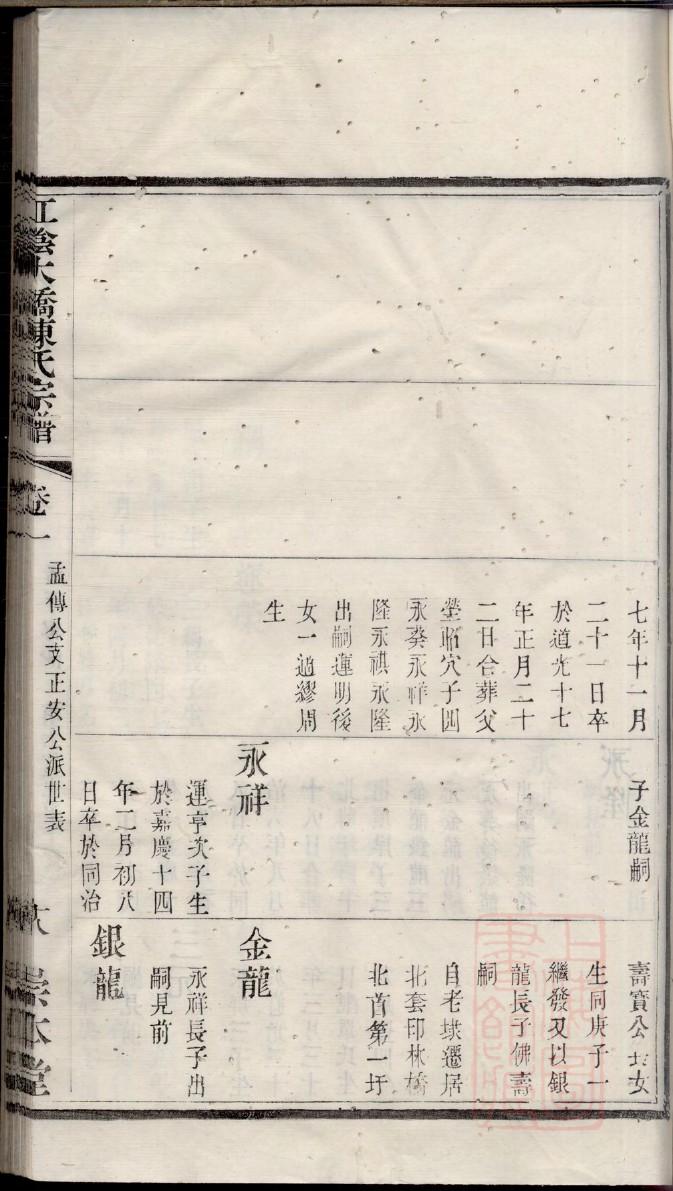 七年十一月
二十一日卒
於道光十七
年正月二十
二日合葬父
塋昭穴子四
永癸永祥永
隆永祺永隆
出嗣運明後
女一適繆周
生
子金龍嗣
永祥
運亨次子生
於嘉慶十四
年二月初八
日卒於同治
壽寶公女
生同庚子一
繼發又以銀
龍長子佛壽
嗣
自老埭遷居
北套印林橋
北首第一圩
金龍
永祥長子出
嗣見前
銀龍
江陰大橋陳氏宗譜
卷一
孟傳公支正安公派世表
崇本堂